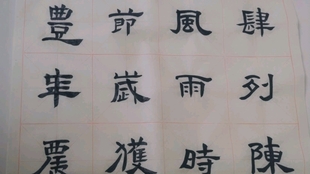 肆列陳
風雨時
節歲獲
豐年農